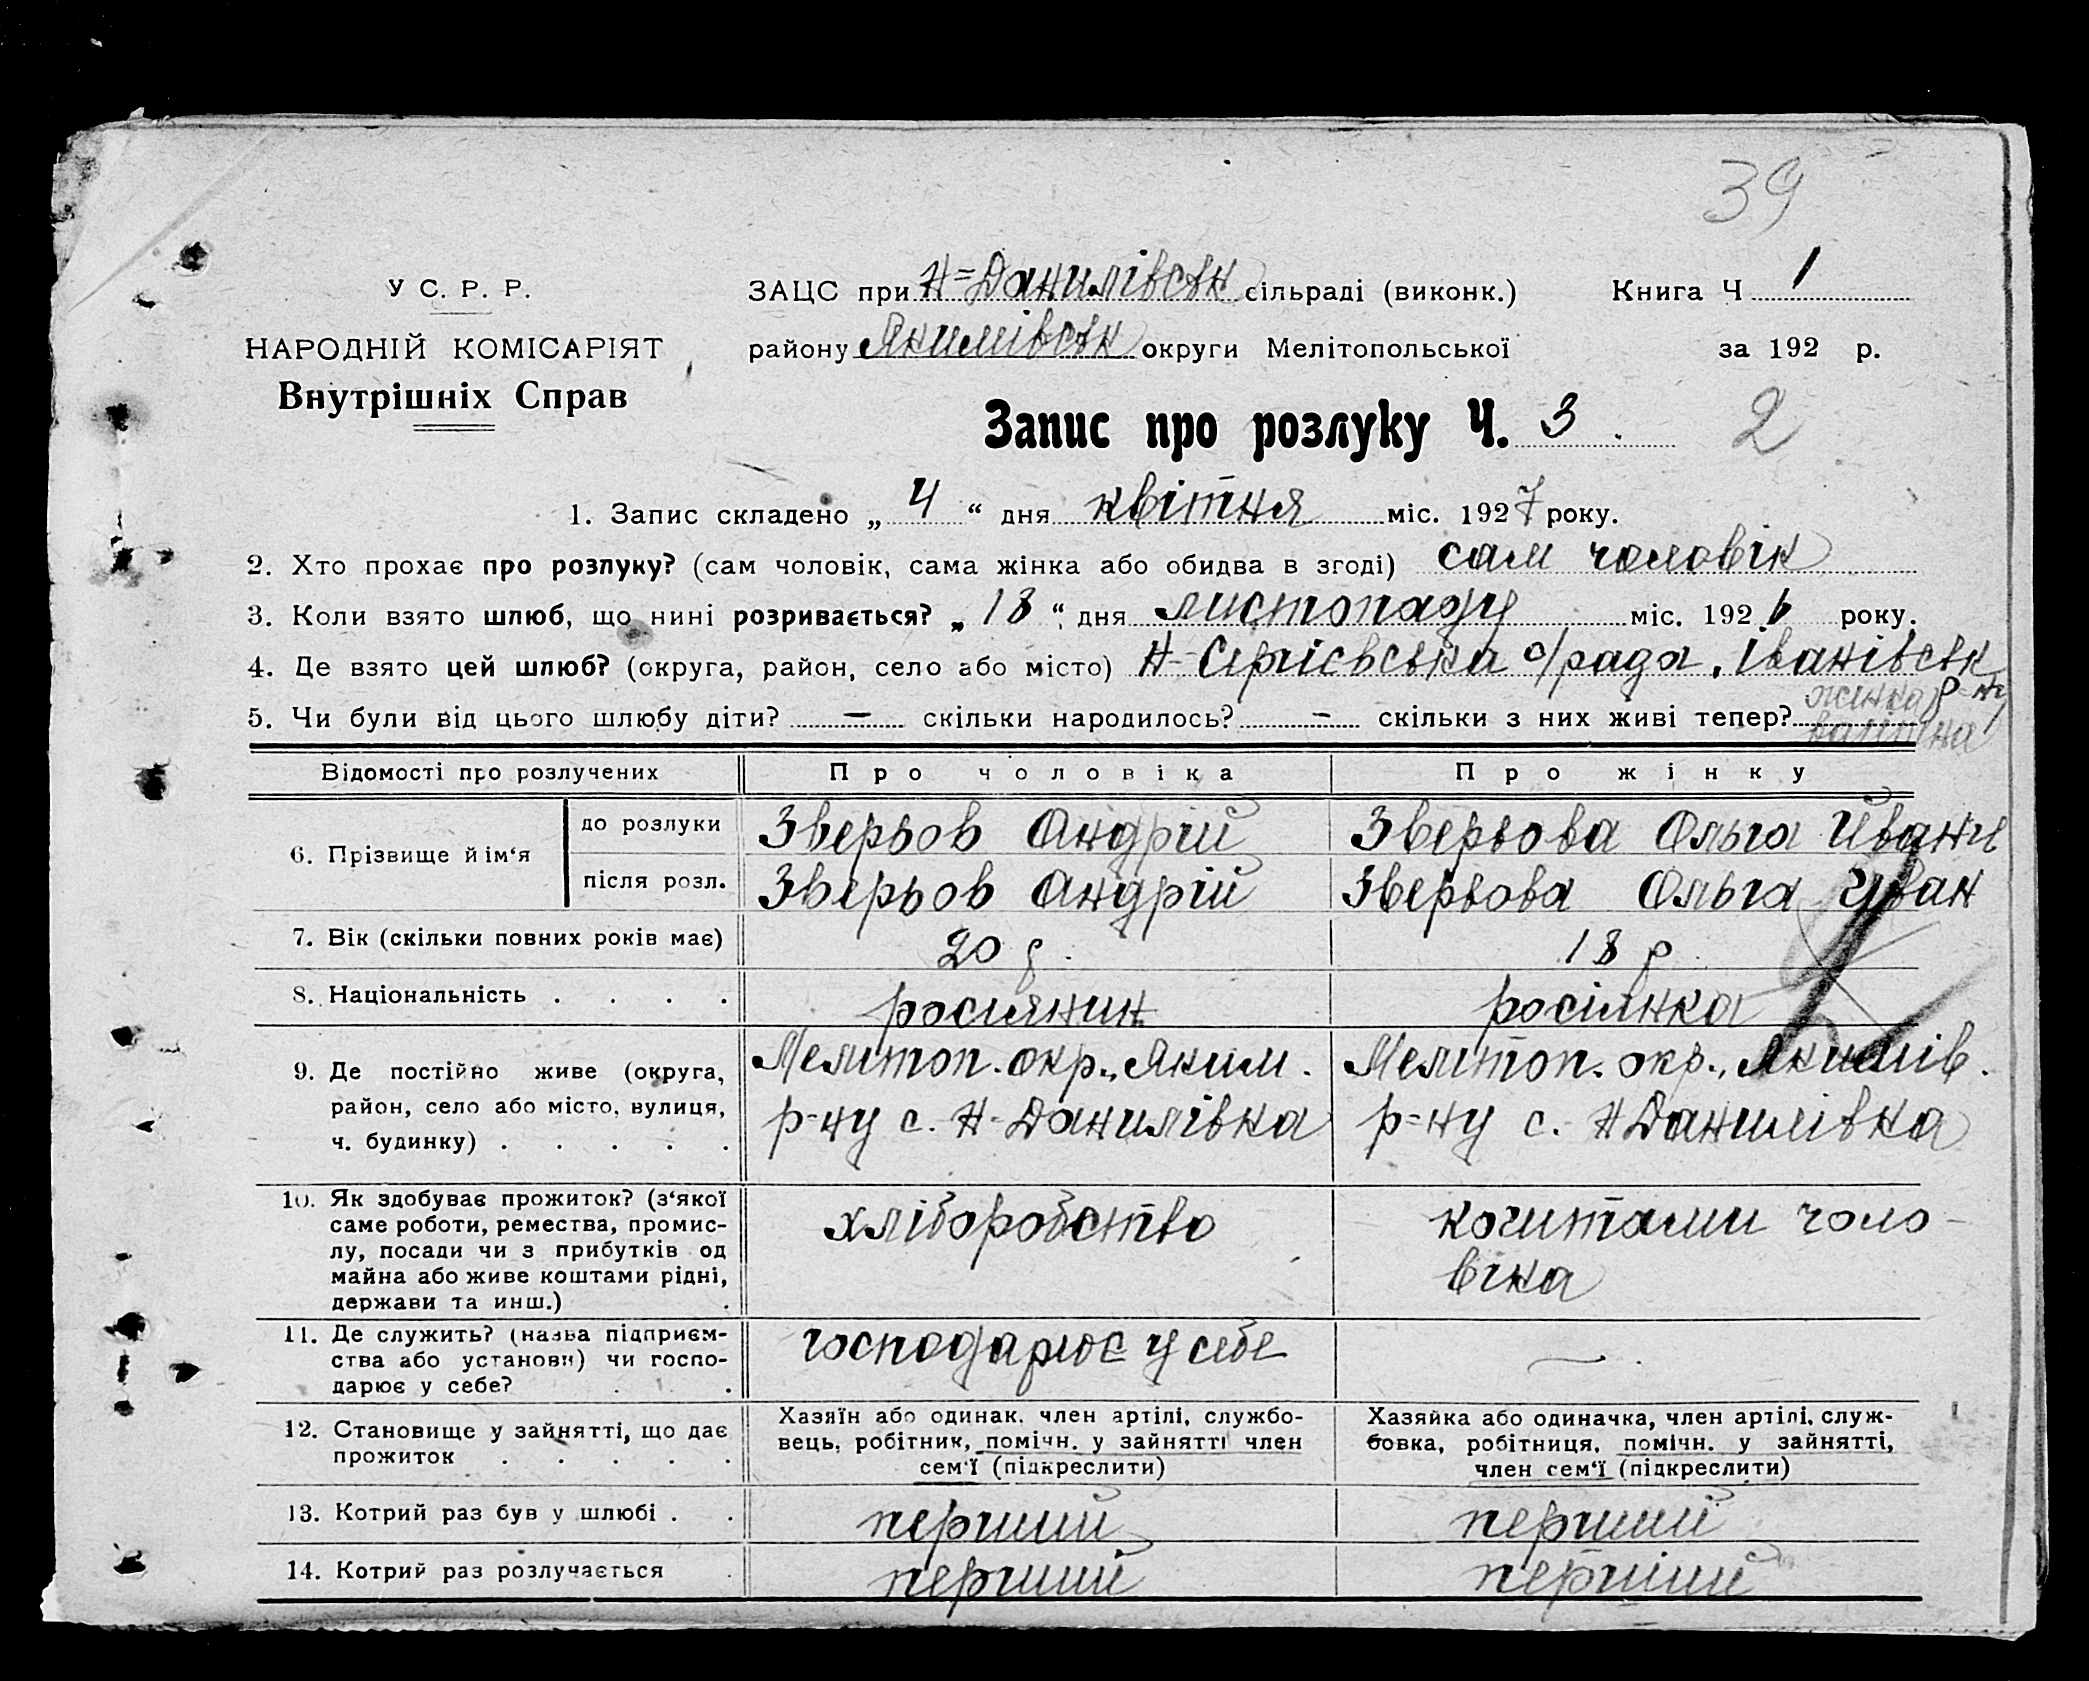 39
У С. Р. Р.
НАРОДНІЙ КОМІСАРІЯТ
Внутрішніх Справ
ЗАЦС при Н=Данилівськ сільраді (виконк.)
району Якимівськ округи Мелітопольської
Книга Ч 1
за 192 р.
Запис про розлуку Ч. 3.
2
1. Запис складено „ 4 “ дня квітня міс. 1927 року.
2. Хто прохає про розлуку? (сам чоловік, сама жінка або обидва в згоді) сам чоловік
3. Коли взято шлюб, що нині розривається? „ 18 “ дня листопаду міс. 1926 року.
4. Де взято цей шлюб? (округа, район, село або місто) Н-Сергієвська с/рада, Іванівськ
р-ну
5. Чи були від цього шлюбу діти? — скільки народилось? — скільки з них живі тепер? жинка
вагітна
Відомості про розлучених
Про чоловіка
Про жінку
6. Прізвище й ім‘я
до розлуки
Зверьов Андрій
Зверьова Ольга Ивани
після розл.
Зверьов Андрій
Зверьова Ольга Иван
7. Вік (скільки повних років має)
20 р.
18 р.
8. Національність . . . .
росіянин
росіянка
9. Де постійно живе (округа,
район, село або місто, вулиця,
ч. будинку) . . . . .
Мелитоп. окр., Яким.
р-ну с. Н-Данилівка
Мелитоп. окр., Якимів.
р=ну с. Н Данилівка
10. Як здобуває прожиток? (з‘якої
саме роботи, ремества, промис-
лу, посади чи з прибутків од
майна або живе коштами рідні,
держави та инш.) .
хліборобство
коштами чоло-
віка
11. Де служить? (назва підприєм-
ства або установи) чи госпо-
дарює у себе? . . .
господарює у себе
—.
12. Становище у зайнятті, що дає
прожиток . . . . .
Хазяїн або одинак. член артілі, службо-
вець, робітник, помічн. у зайнятті член
сем‘ї (підкреслити)
Хазяйка або одиначка, член артілі, служ-
бовка, робітниця, помічн. у зайнятті,
член сем‘ї (підкреслити)
13. Котрий раз був у шлюбі . .
перший
перший
14. Котрий раз розлучається .
перший
перший